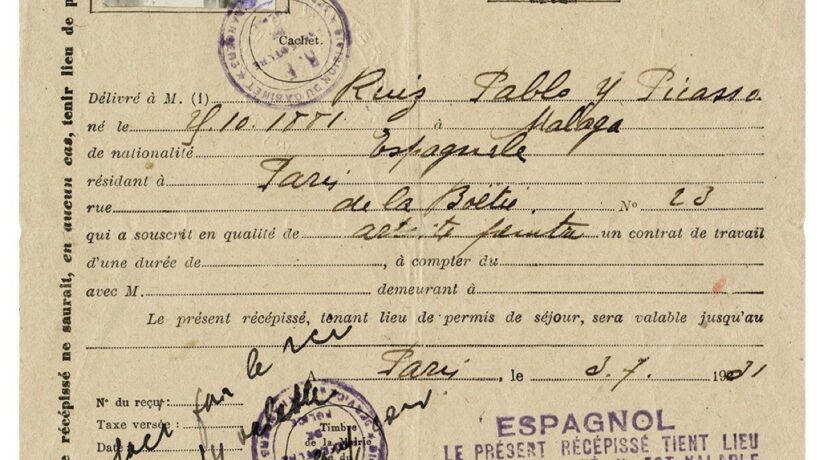 Cachet.
DIVISION DU CABINET
Délivré à M. (1) Ruiz Pablo y Picasso
né le .10.1881 à Mallaga
de nationalité Espagnole
résidant à Paris
rue de la Boétie. N° 23
qui a souscrit en qualité de artiste peintre un contrat de travail
d'une durée de , à compter du
avec M. demeurant à
Le présent récépissé, tenant lieu de permis de séjour, sera valable jusqu'au
A Paris , le 3.7. 1931
N° du reçu:
Taxe versée:
Date
Timbre
de la Mairie
ou du
ESPAGNOL
LE PRÉSENT RÉCÉPISSÉ TIENT LIEU
EST VALABLE
récépissé ne saurait, en aucun cas, tenir lieu de